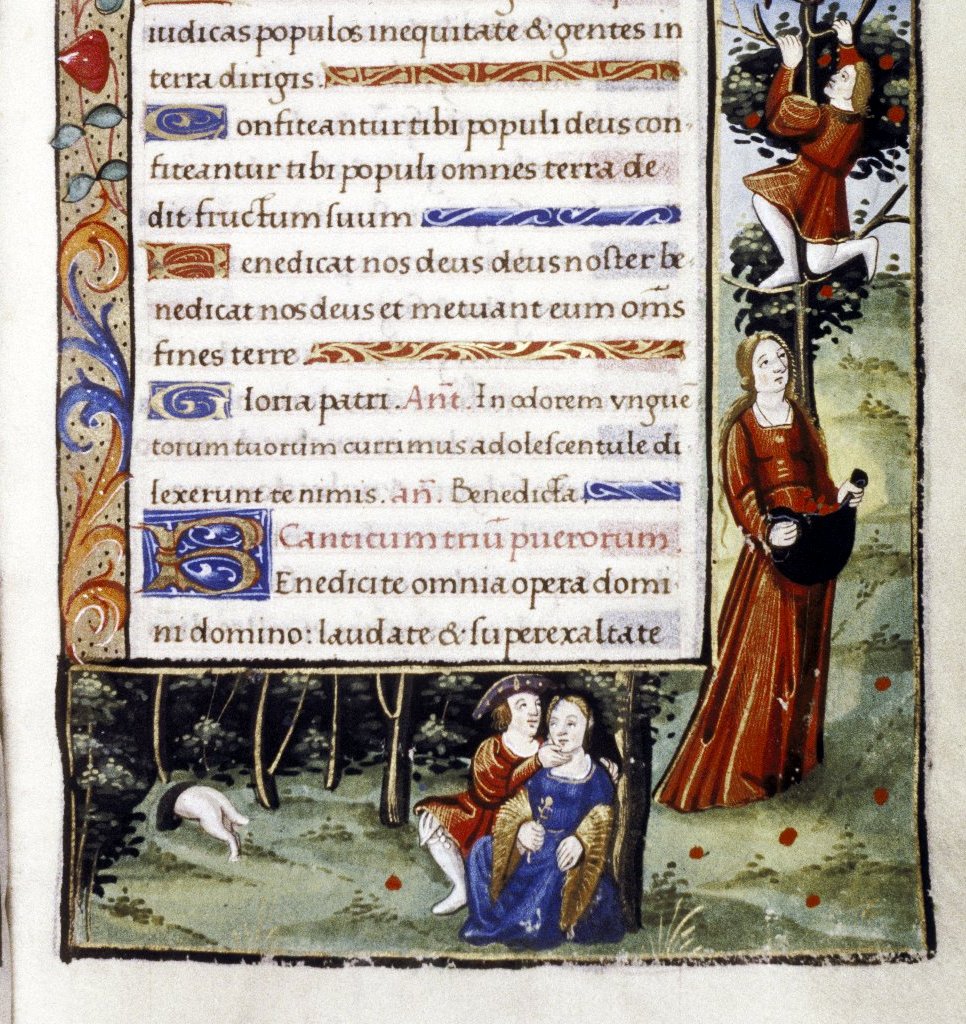 iudicas populos inequitate & gentes in
terra dirigis.
Confiteantur tibi populi deus con
fiteantur tibi populi omnes terra de
dit fructum ſuum
Benedicat nos deus deus noſter be
nedicat nos deus et metuant eum om̄s
fines terre
Gloria patri. An̄t. In odorem vnguē
torum tuorum currimus adoleſcentule di
lexerunt te nimis. an̄. Benedicta
Canticum triū puerorum
BEnedicite omnia opera domi
ni domino: laudate & ſuperexaltate